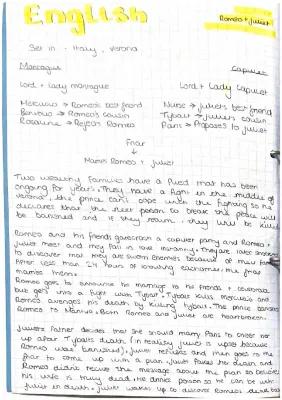 English
Romeo + Juliet
Set in - Italy, Verona
Montague Capulet
Lord + Lady montague Lord + Lady Capulet
Mercutio → Romeo's best friend Nurse → Juliet's best friend
Benvolio → Romeo's cousin Tybalt → Juliet's cousin
Rosaline → Rejects Romeo Paris → Proposes to Juliet
Friar
↓
Marries Romeo + Juliet
Two wealthy families have a feud that has been
ongoing for years. They have a fight in the middle of
verona, the prince can't cope with the fighting so he
declares that the next person to break the peace will
be banished and if they return they will be killed
Romeo and his friends gatecrash a capulet party and Romeo +
Juliet meet and they fall in love instantly. They are
to discover that they are sworn enemies because of their
After less than 24 hours of knowing eachother the friar
marries them.
Romeo goes to announce his marriage to his friends +
but gets into a fight with Tybalt. Tybalt kills Mercutio and
Romeo avenges his death by killing tybalt. The prince banishes
Romeo to Mantua. Both Romeo and Juliet are heartbroken.
Juliet's Father decides that she should marry Paris to cheer her
up after Tybalt's death (in reality Juliet is upset because
Romeo was banished). Juliet refuses and then goes to the
friar to come up with a plan. Juliet fakes her death and
Romeo didn't recieve the message about the plan so believes
his wife is truly dead. He drinks poison so he can be with
Juliet in death. Juliet wakes up to discover Romeo's dead body